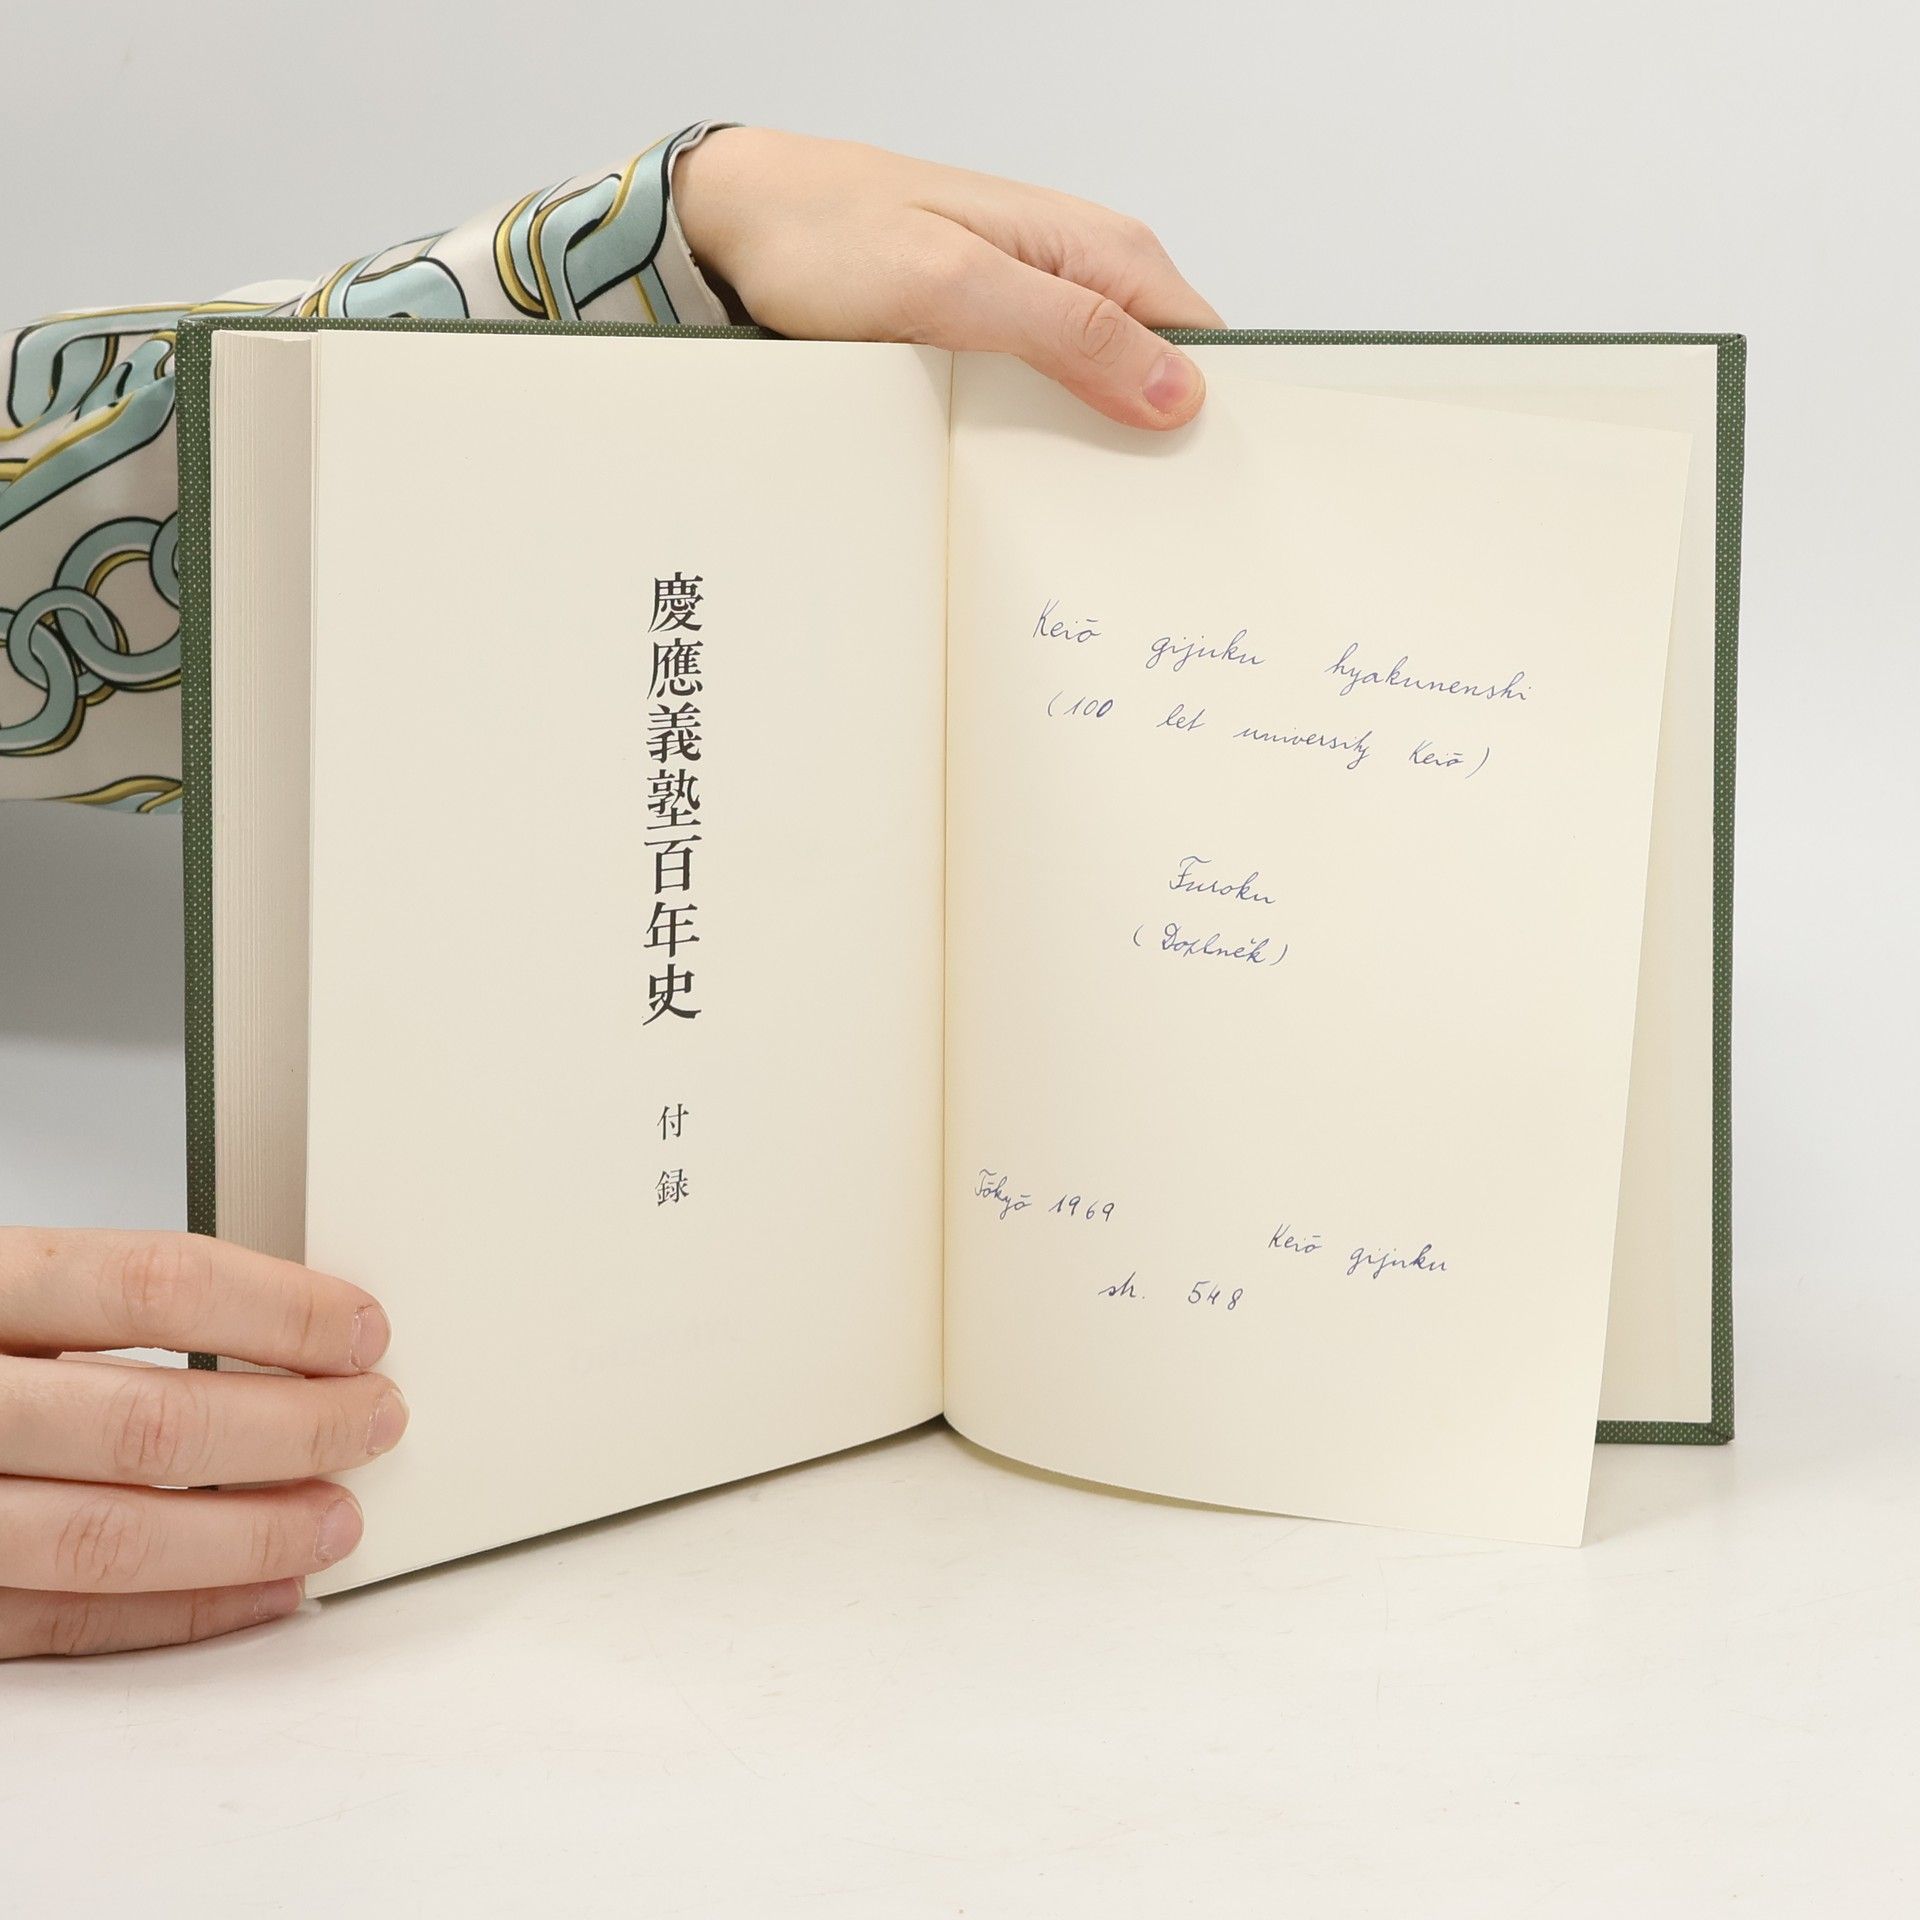 慶應義塾百年史
付録
Keiō gijuku hyakunenshi
(100 let university Keiō)
Furoku
(Doplněk)
Tōkyō 1969
Keiō gijuku
str. 548